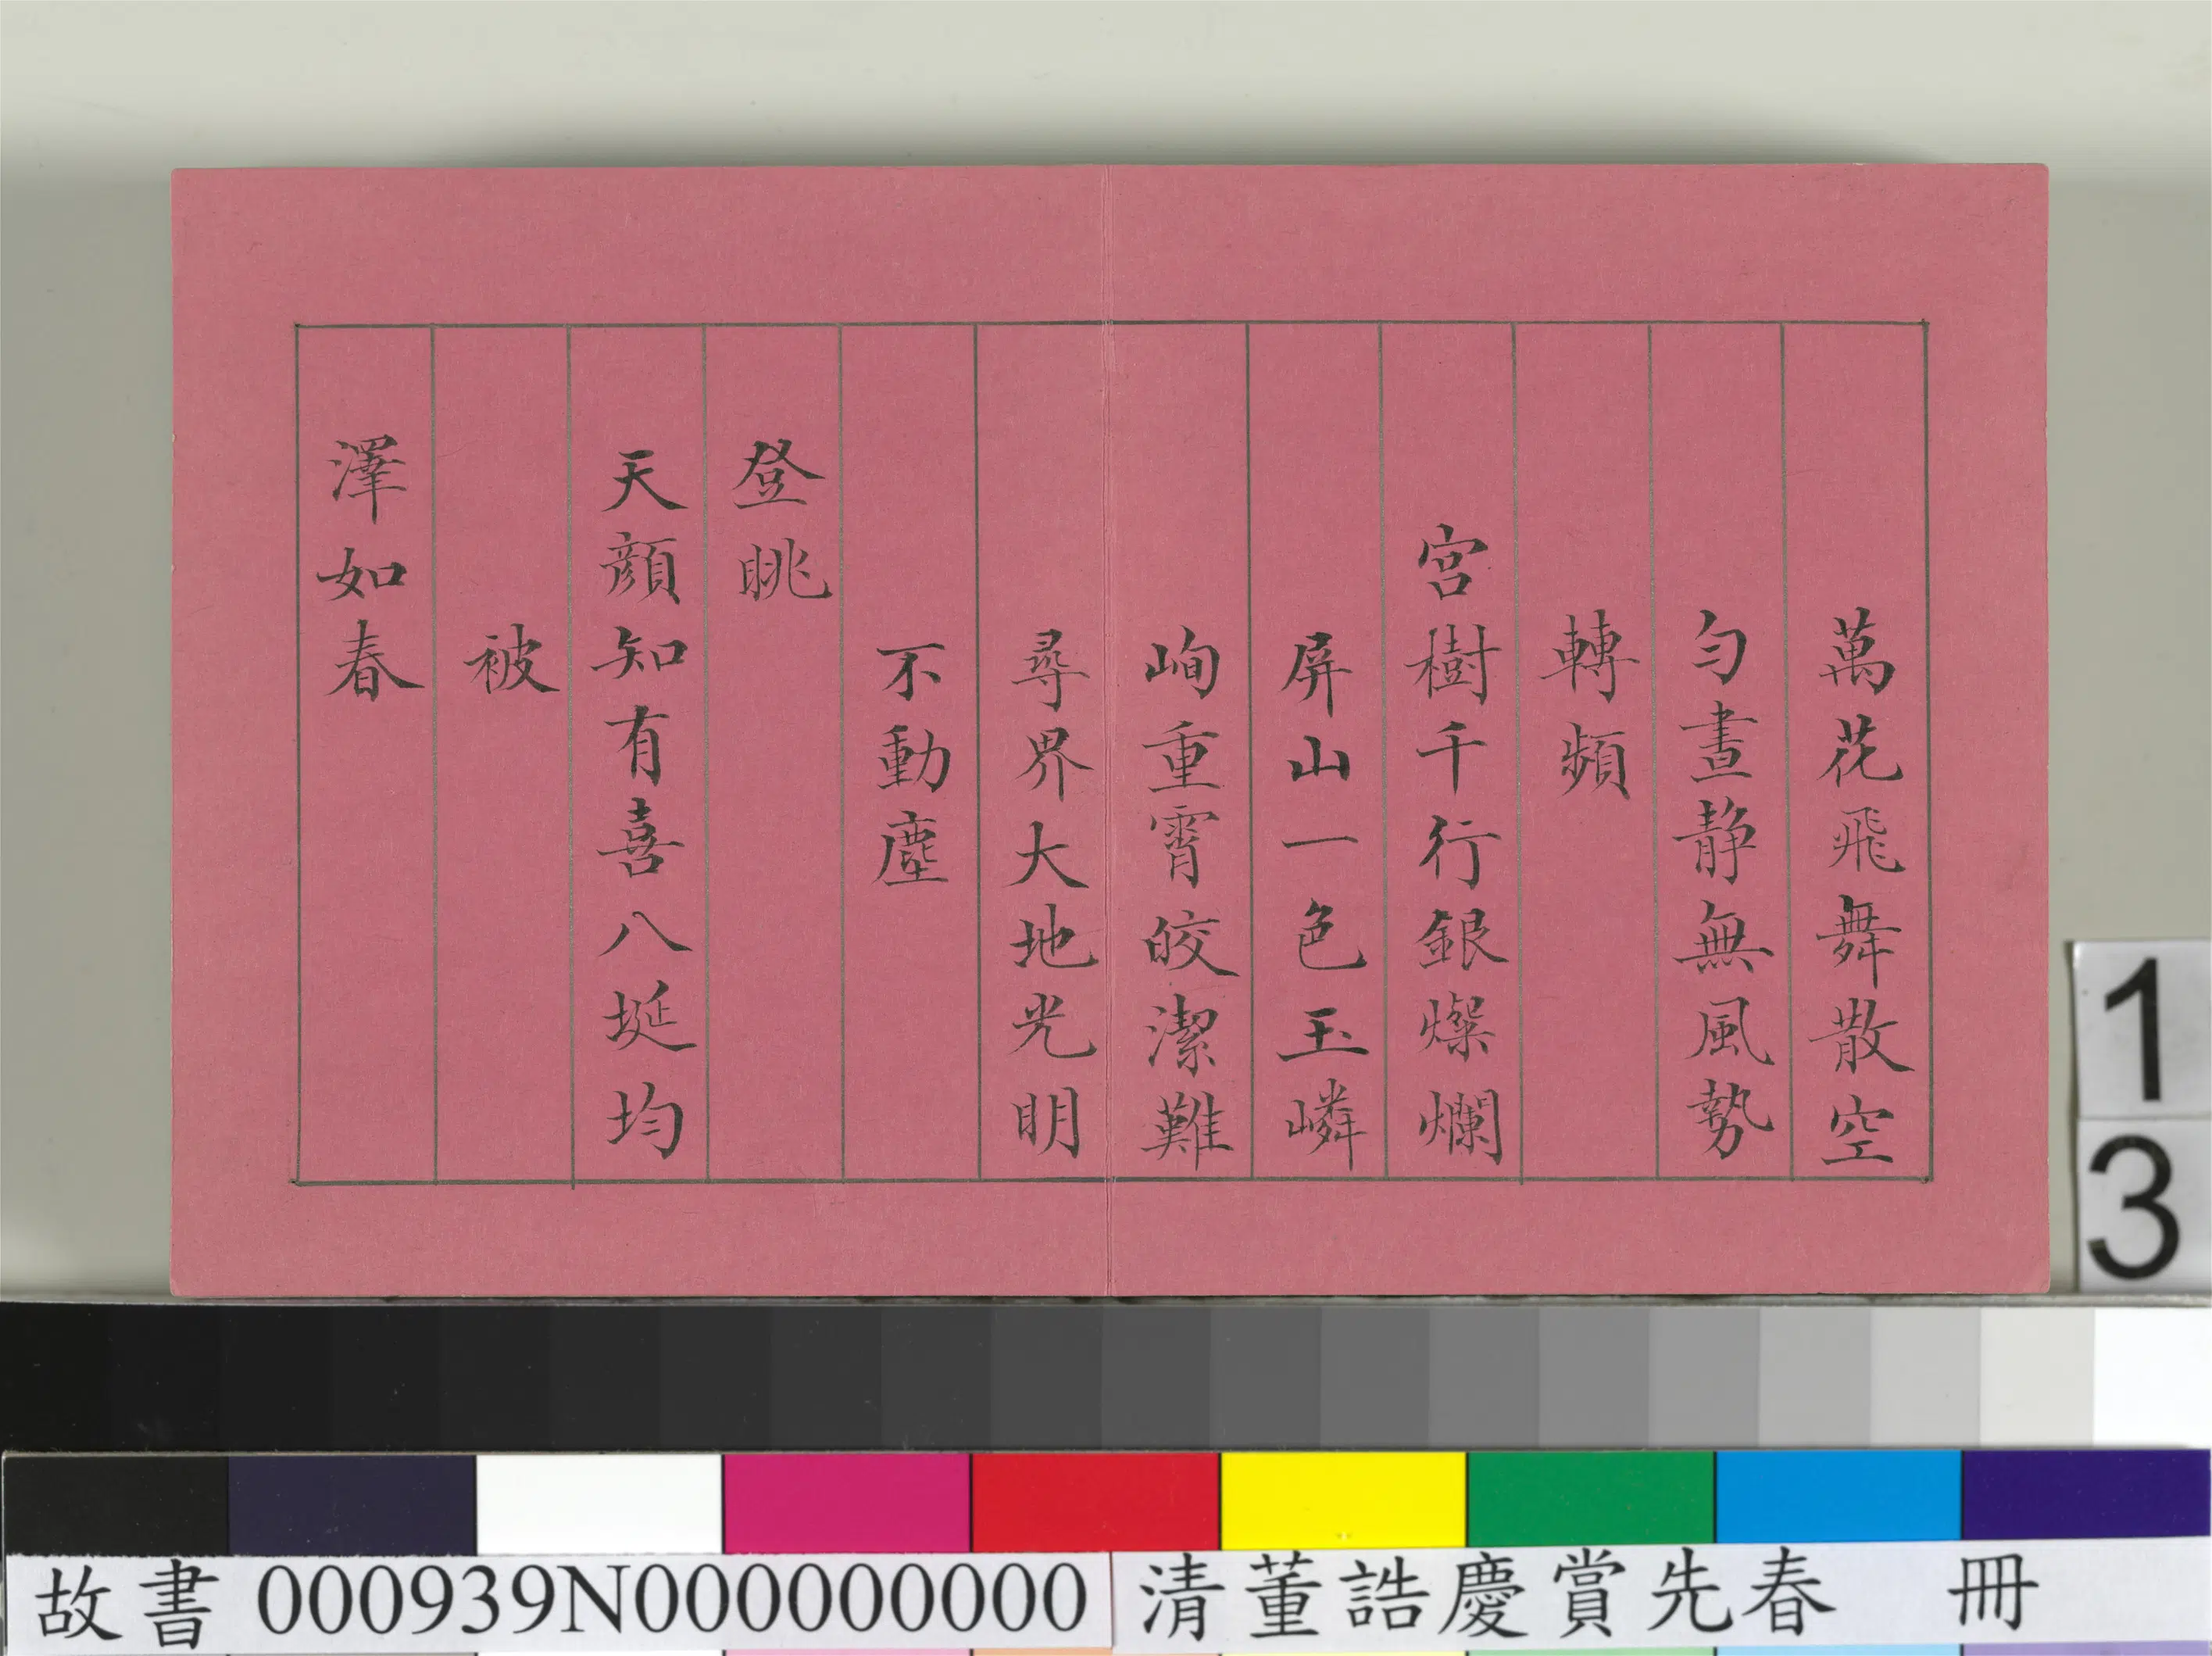 萬花飛舞散空
勻晝静無風勢
轉頻
宮樹千行銀燦爛
屏山一色玉嶙
峋重霄皎潔難
尋界大地光明
不動塵
登眺
天顏知有喜八埏均
被
澤如春
1
3
故書 000939N000000000 清董誥慶賞先春 冊